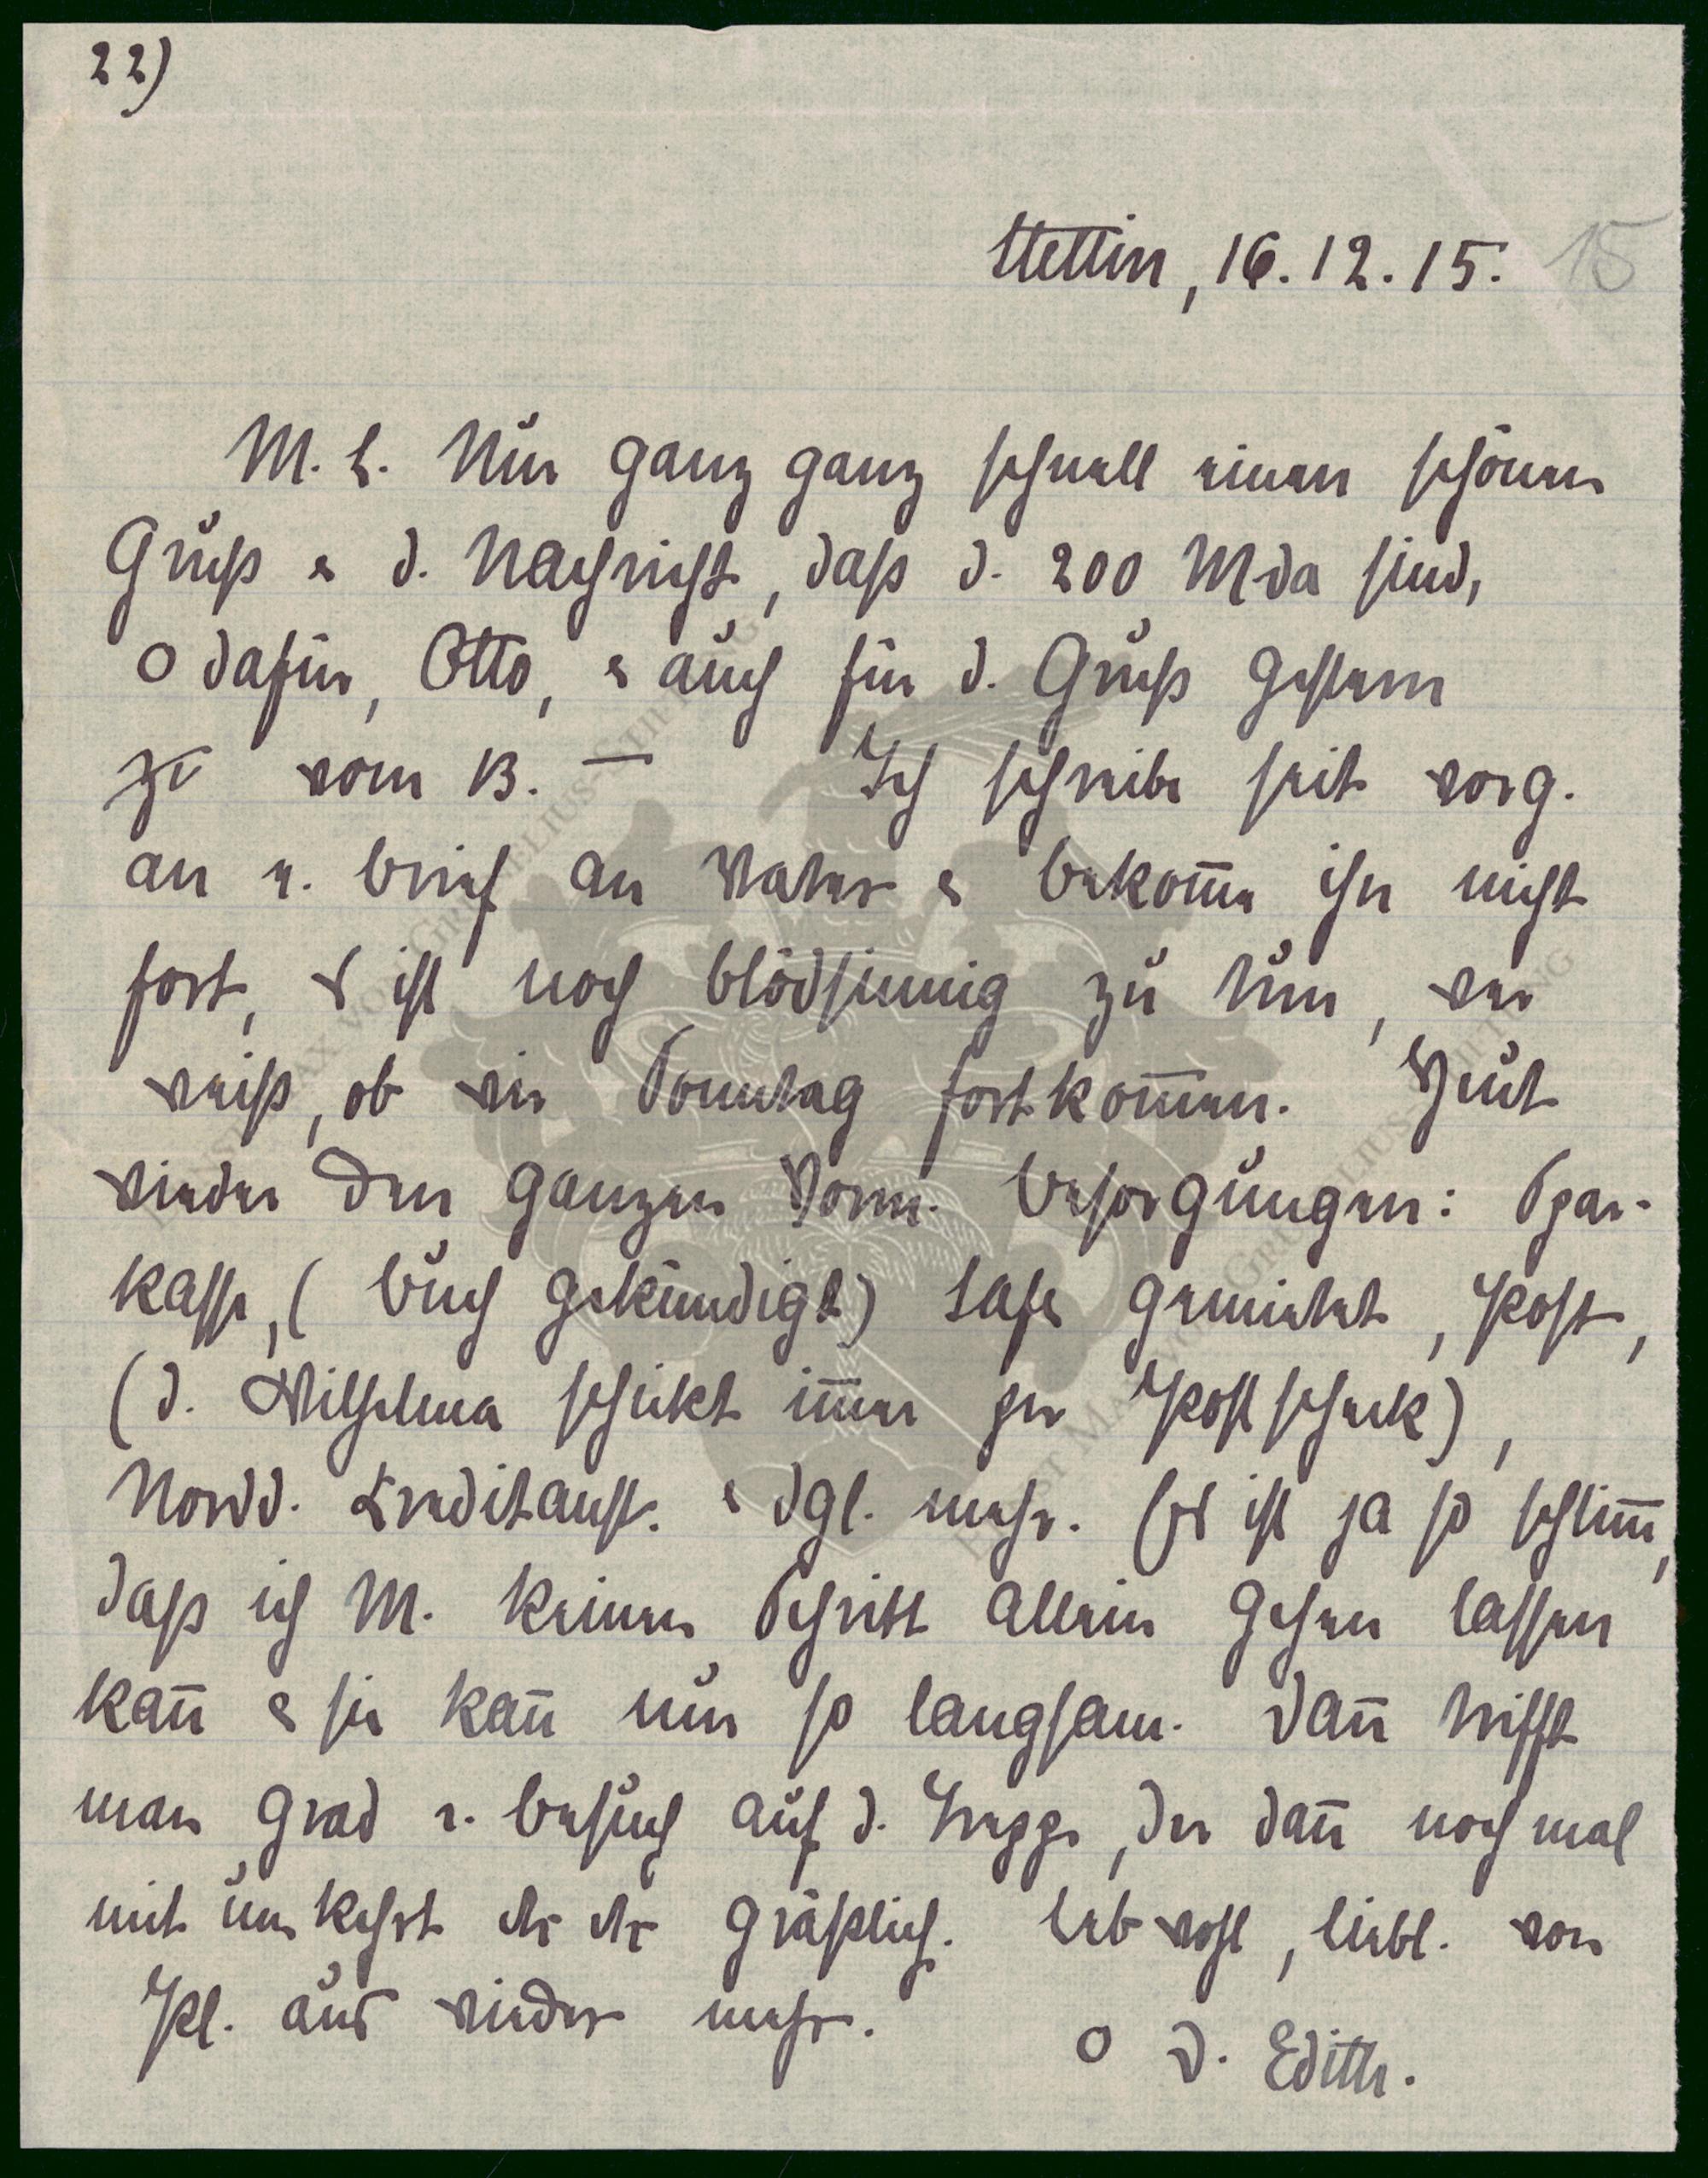 22)
Stettin, 16.12.15. 15
M. L. Nur ganz ganz schnell einen schönen
Gruß & d. Nachricht, daß d. 200 M da sind,
O dafür, Otto, & auch für d. Gruß gestern
zu vom 13. — Ich schreibe seit vorg.
an e. Brief an Vater & bekomme ihn nicht
fort, es ist noch blödsinnig zu tun, wer
weiß, ob wir Sonntag fortkommen. Heut
wieder den ganzen Vorm. Besorgungen: Spar-
kasse, (Buch gekündigt) Safe gemietet, Post,
(d. Wilhelma schickt immer per Postscheck),
Nordd. Kreditanst. & dgl. mehr. Es ist ja so schlimm,
daß ich M. keinen Schritt allein gehen lassen
kann & sie kann nur so langsam. Dann trifft
man grad e. Besuch auf d. Treppe, der dann noch mal
mit umkehrt etc etc gräßlich. Leb wohl, liebl. von
Pl. aus wieder mehr.
O D. Edith.
ERNST MAX VON GRUNELIUS-STIFTUNG
ERNST MAX VON GRUNELIUS-STIFTUNG